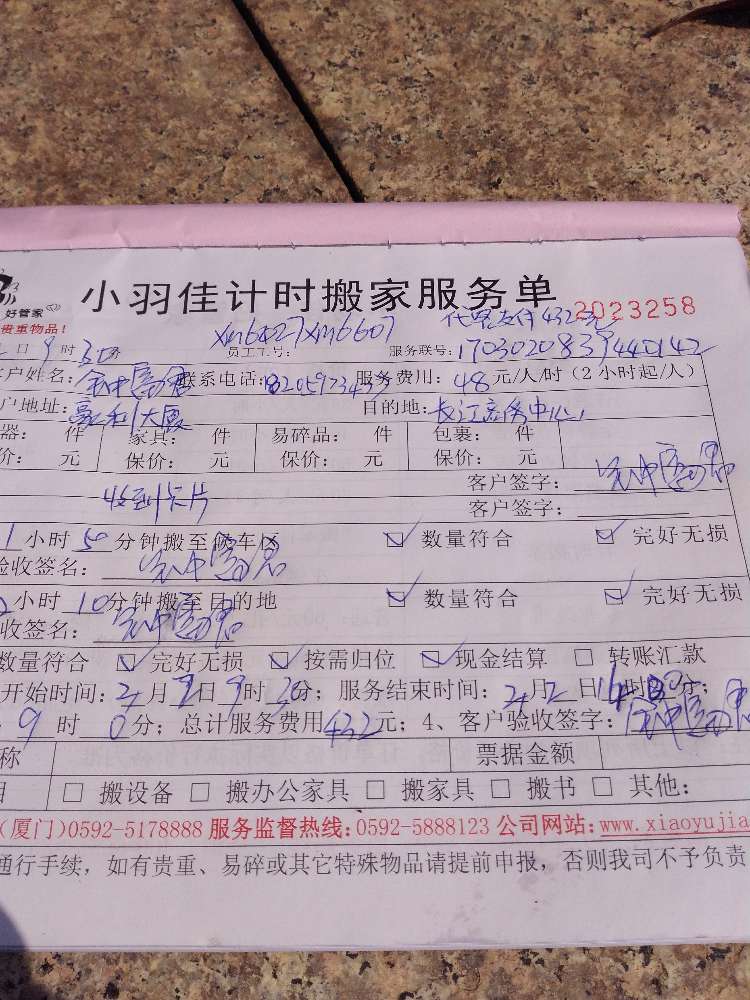 好管家
小羽佳计时搬家服务单 2023258
贵重物品！
代收支付432元
日9时30分 员工工号：xm6427xm6607 服务联号：1703020839440142
客户姓名： 联系电话： 服务费用：48元/人/时（2小时起/人）
户地址：大厦 目的地：长江商务中心
器： 件 家具： 件 易碎品： 件 包裹： 件
价： 元 保价： 元 保价： 元 保价： 元
客户签字：
收到卡片 客户签字：
1小时50分钟搬至候车区 ☑ 数量符合 ☑ 完好无损
验收签名：
2小时10分钟搬至目的地 ☑ 数量符合 ☑ 完好无损
收签名：
数量符合 ☑ 完好无损 ☑ 按需归位 ☑ 现金结算 □ 转账汇款
开始时间：2月2日9时30分；服务结束时间：2月2日14时分；
9时0分；总计服务费用432元；4、客户验收签字：
称 票据金额
目 □ 搬设备 □ 搬办公家具 □ 搬家具 □ 搬书 □ 其他：
(厦门)0592-5178888 服务监督热线：0592-5888123 公司网站：www.xiaoyujia
通行手续，如有贵重、易碎或其它特殊物品请提前申报，否则我司不予负责